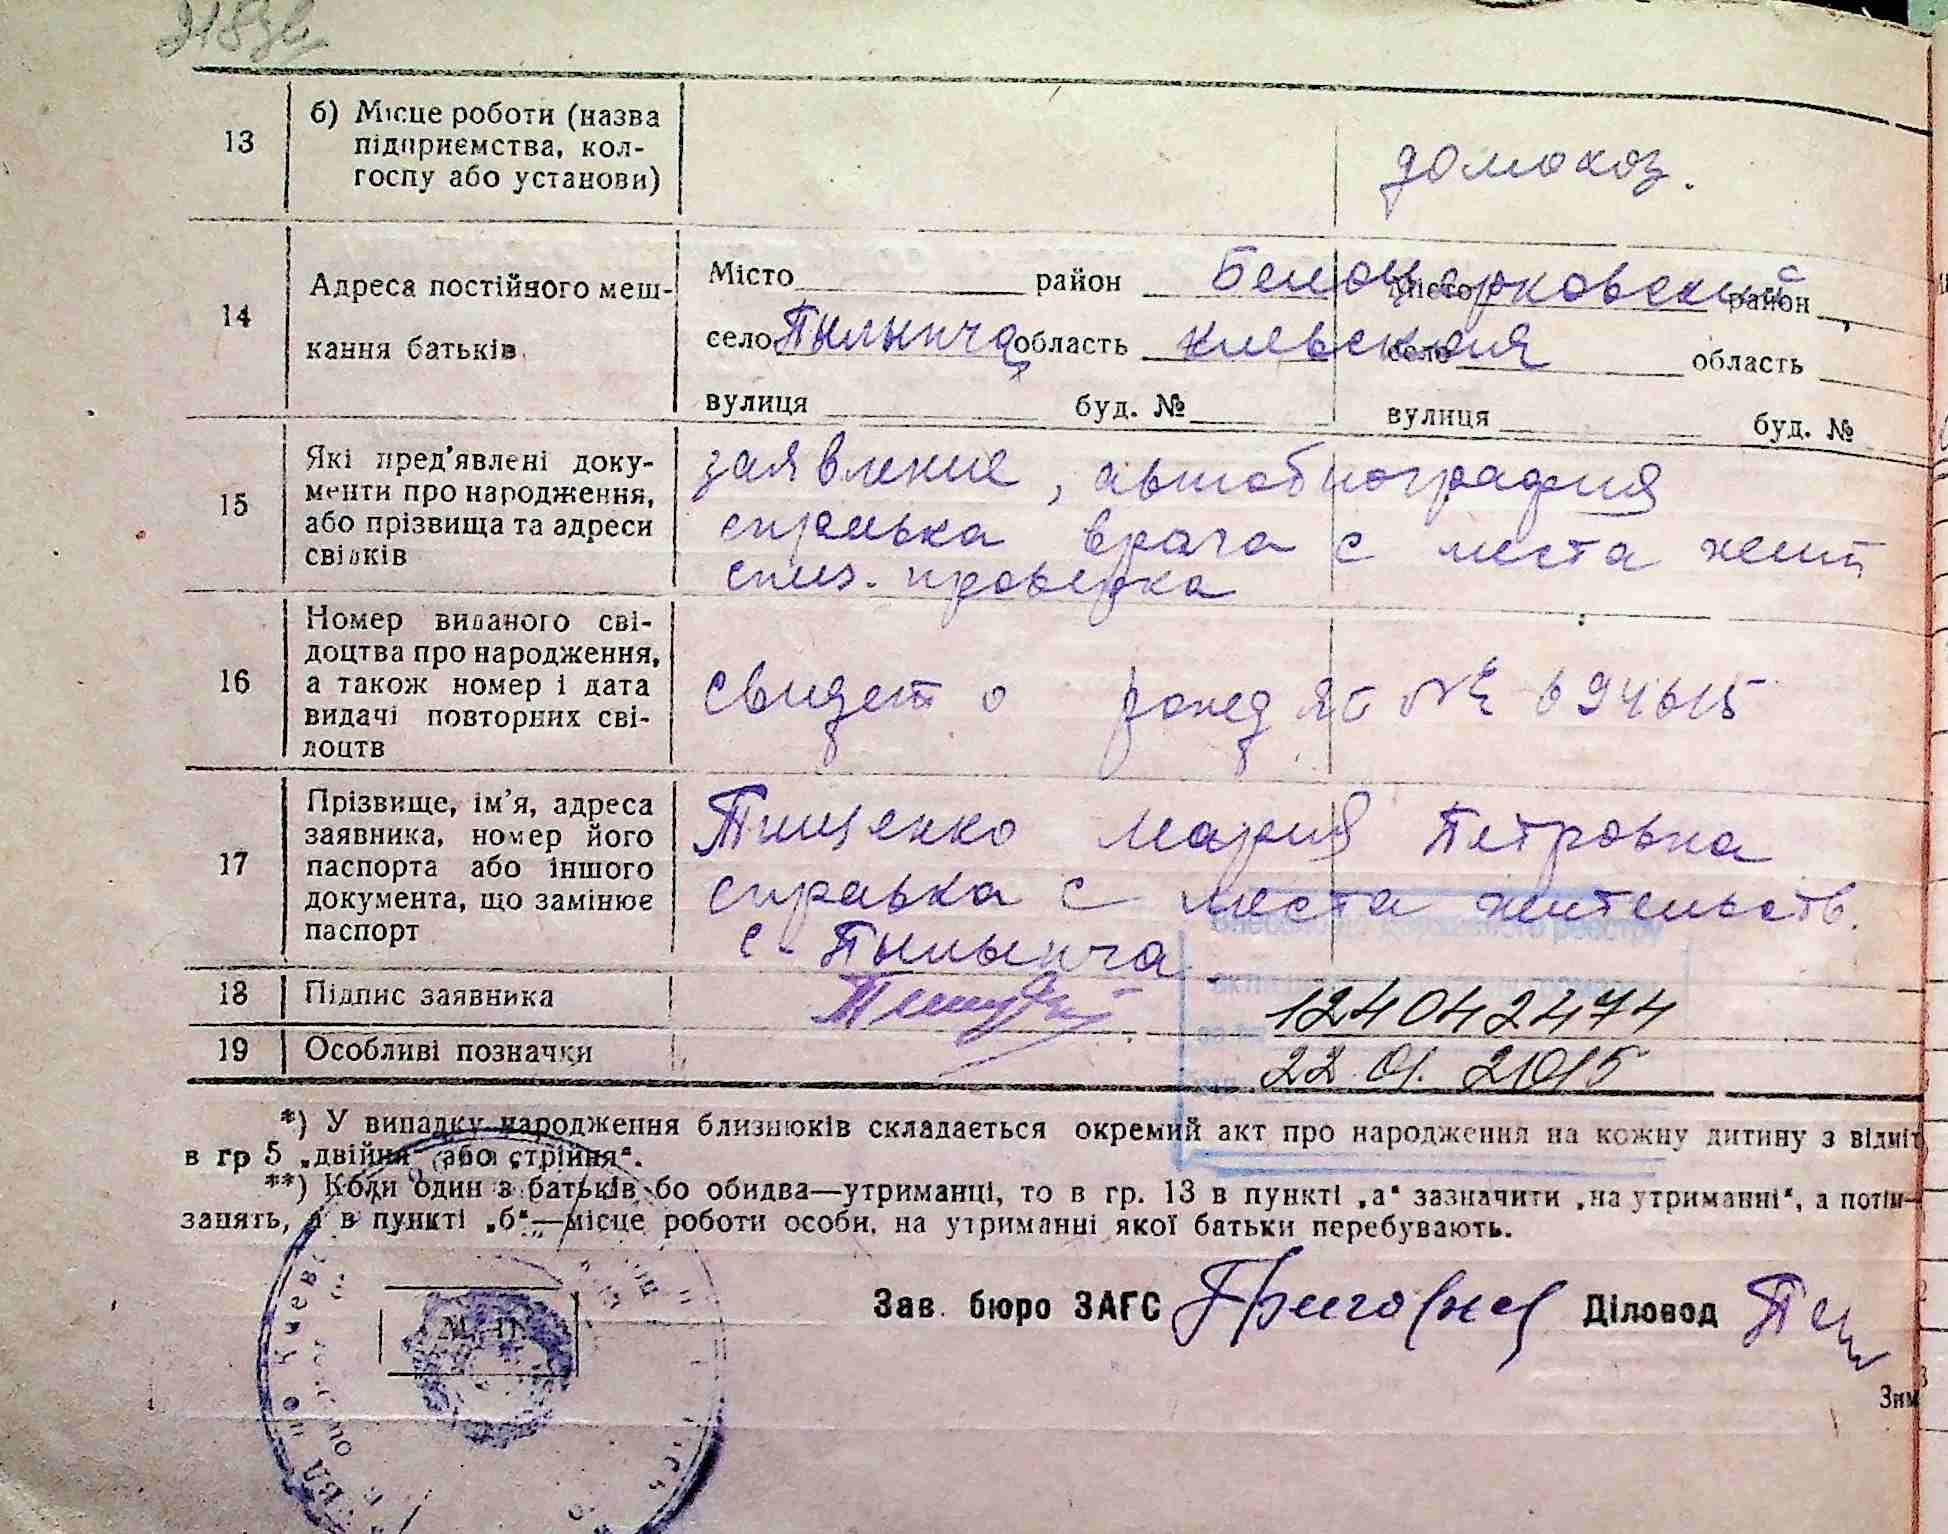 13
б) Місце роботи (назва
підприємства, кол-
госпу або установи)
домохоз.
14
Адреса постійного меш-
кання батьків
Місто район Белоцерковский Місто район
село Пылыпча область Киевская село область
вулиця буд. № вулиця буд. №
15
Які пред'явлені доку-
менти про народження,
або прізвища та адреси
свідків
заявление, автобиография
справка врача с места жит
спец. проверка
16
Номер виданого сві-
доцтва про народження,
а також номер і дата
видачі повторних сві-
доцтв
свидет о рожд № 694615
17
Прізвище, ім'я, адреса
заявника, номер його
паспорта або іншого
документа, що замінює
паспорт
Тищенко Мария Петровна
справка с места жительств.
с. Пылыпча
державного реєстру
18
Підпис заявника
124042474
19
Особливі позначки
22.01.2015
*) У випадку народження близнюків складається окремий акт про народження на кожну дитину з відміт
в гр 5 „двійня" або „стрійня".
**) Коли один з батьків бо обидва—утриманці, то в гр. 13 в пункті „а" зазначити „на утриманні", а потім—
занять, а в пункті „б"—місце роботи особи, на утриманні якої батьки перебувають.
Зав. бюро ЗАГС Діловод
М. П.
Зим